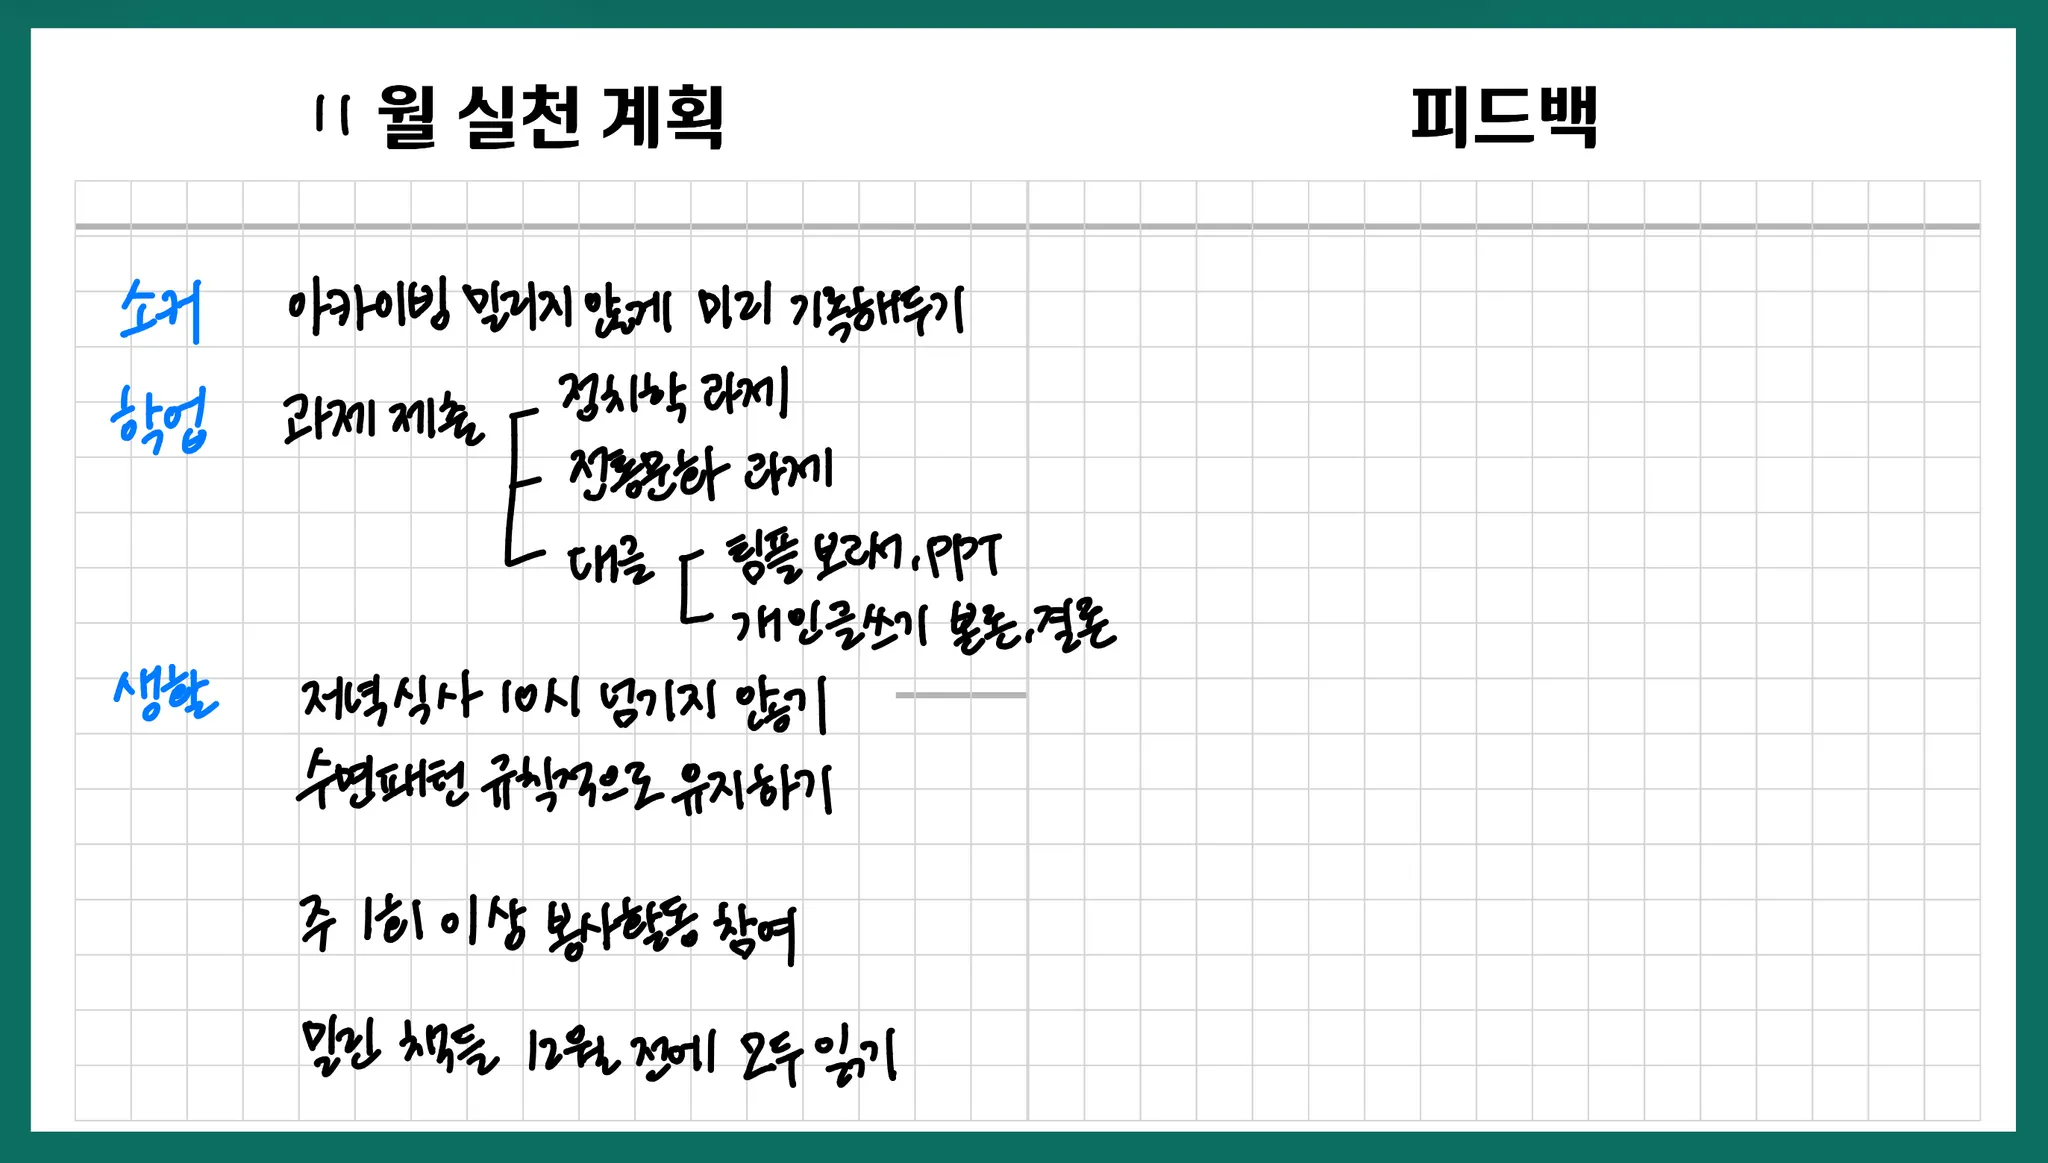 11월 실천 계획
피드백
소커 아카이빙 밀리지 않게 미리 기록해두기
학업 과제 제출
정치학 과제
전통문화 과제
대글
팀플 보고서, PPT
개인글쓰기 본론, 결론
생활 저녁식사 10시 넘기지 않기
수면패턴 규칙적으로 유지하기
주 1회 이상 봉사활동 참여
밀린 책들 12월 전에 모두 읽기